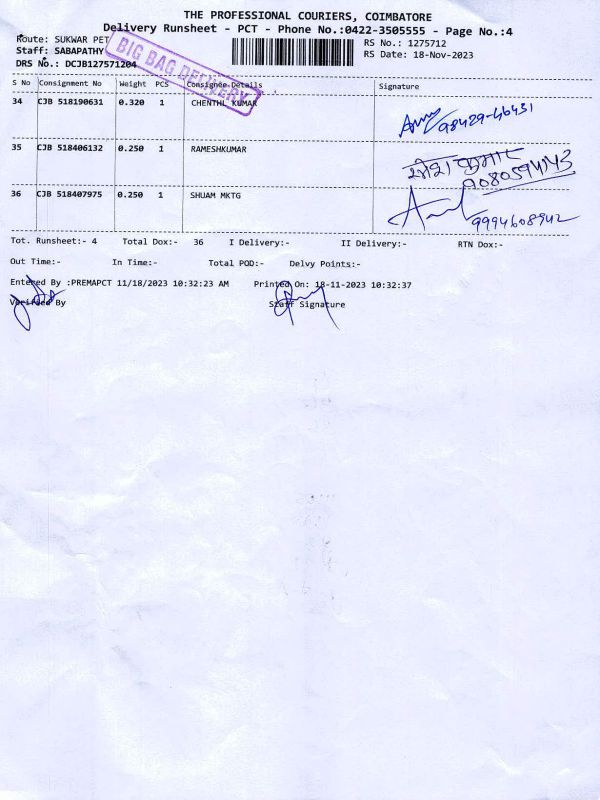 THE PROFESSIONAL COURIERS, COIMBATORE
Delivery Runsheet - PCT - Phone No.:0422-3505555 - Page No.:4
Route: SUKWAR PET
RS No.: 1275712
Staff: SABAPATHY
RS Date: 18-Nov-2023
DRS No.: DCJB127571204
BIG BAG DELIVERY
S No Consignment No Weight PCS Consignee Details Signature
34 CJB 518190631 0.320 1 CHENTHL KUMAR
98429-46431
35 CJB 518406132 0.250 1 RAMESHKUMAR
9080594143
36 CJB 518407975 0.250 1 SHUAM MKTG
9994608942
Tot. Runsheet:- 4 Total Dox:- 36 I Delivery:- II Delivery:- RTN Dox:-
Out Time:- In Time:- Total POD:- Delvy Points:-
Entered By :PREMAPCT 11/18/2023 10:32:23 AM Printed On: 18-11-2023 10:32:37
Verified By Staff Signature